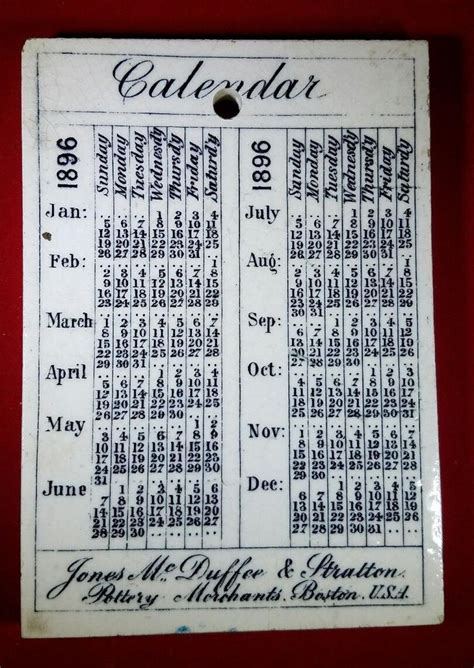 Calendar
1896 Sunday Monday Tuesday Wednesdy Thursdy Friday Saturdy
Jan: 1 2 3 4
5 6 7 8 9 10 11
12 13 14 15 16 17 18
19 20 21 22 23 24 25
26 27 28 29 30 31
Feb: 1
2 3 4 5 6 7 8
9 10 11 12 13 14 15
16 17 18 19 20 21 22
23 24 25 26 27 28 29
March 1 2 3 4 5 6 7
8 9 10 11 12 13 14
15 16 17 18 19 20 21
22 23 24 25 26 27 28
29 30 31
April 1 2 3 4
5 6 7 8 9 10 11
12 13 14 15 16 17 18
19 20 21 22 23 24 25
26 27 28 29 30
May 1 2
3 4 5 6 7 8 9
10 11 12 13 14 15 16
17 18 19 20 21 22 23
24 25 26 27 28 29 30
31
June 1 2 3 4 5 6
7 8 9 10 11 12 13
14 15 16 17 18 19 20
21 22 23 24 25 26 27
28 29 30
1896 Sunday Monday Tuesday Wednesdy Thursdy Friday Saturdy
July 1 2 3 4
5 6 7 8 9 10 11
12 13 14 15 16 17 18
19 20 21 22 23 24 25
26 27 28 29 30 31
Aug: 1
2 3 4 5 6 7 8
9 10 11 12 13 14 15
16 17 18 19 20 21 22
23 24 25 26 27 28 29
30 31
Sep: 1 2 3 4 5
6 7 8 9 10 11 12
13 14 15 16 17 18 19
20 21 22 23 24 25 26
27 28 29 30
Oct: 1 2 3
4 5 6 7 8 9 10
11 12 13 14 15 16 17
18 19 20 21 22 23 24
25 26 27 28 29 30 31
Nov: 1 2 3 4 5 6 7
8 9 10 11 12 13 14
15 16 17 18 19 20 21
22 23 24 25 26 27 28
29 30
Dec: 1 2 3 4 5
6 7 8 9 10 11 12
13 14 15 16 17 18 19
20 21 22 23 24 25 26
27 28 29 30 31
Jones Mc Duffee & Stratton.
Pottery Merchants. Boston. U.S.A.